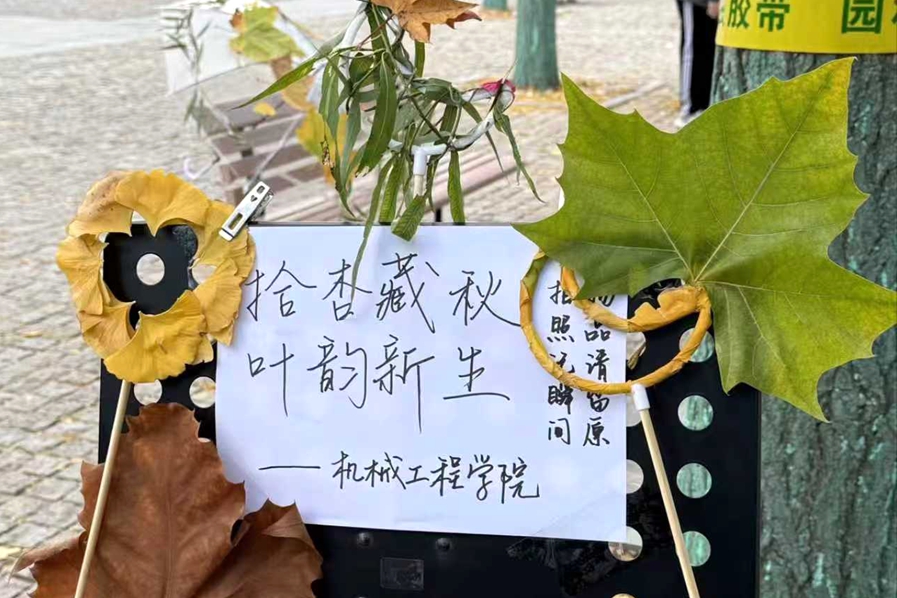 胶带 园
拾杏藏秋
叶韵新生
——机械工程学院
品请留原
拍照记瞬间